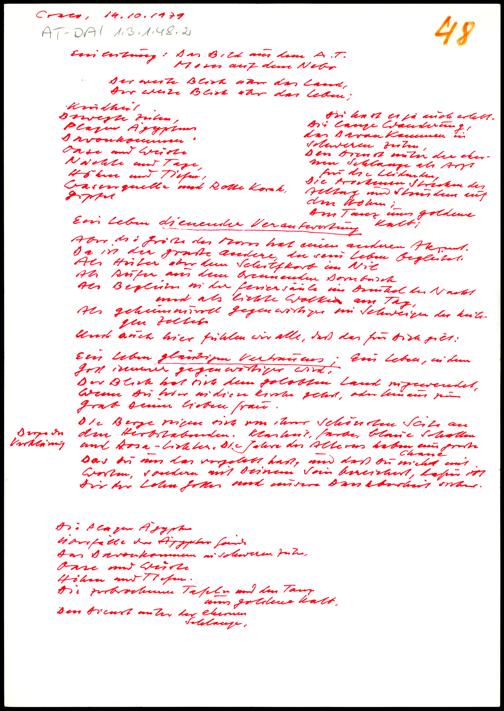 14.10.1979
AT-DAI 1.3.1.48.2
48
Einleitung: Das Bild aus dem A.T.
Moses auf dem Nebo
Der weite Blick über das Land,
Der weite Blick über das Leben;
Kindheit
Bewegte Zeiten,
Plagen Ägyptens
Davonkommen
Oase und Wüste
Nächte und Tage,
Höhen und Tiefen,
Wasserquelle und Rotte Korah,
Gipfel
Du hast es ja auch erlebt.
Die lange Wanderung,
das Davonkommen in
schweren Zeiten,
Den Dienst unter der eher-
nen Schlange als Arzt
für die Leidenden,
Die trockenen Strecken des
Alltag und Stunden auf
den Höhen,
Den Tanz ums goldene
Kalb;
Ein Leben dienender Verantwortung
Aber die Größe des Moses hat einen anderen
Da ist der große andere, der sein Leben begleitet.
Als Hüter über dem Schilfkorb im Nil
Als Rufer aus dem brennenden Dornbusch
Als Begleiter in der Feuersäule im Dunkel der Nacht
und als lichte Wolke am Tag,
Als geheimnisvoll Gegenwärtiger im Schweigen des heili-
gen Zeltes
Und auch hier fühlen wir alle, daß das für Dich gilt:
Ein Leben gläubigen Vertrauens; Ein Leben, in dem
Gott immer gegenwärtiger wird.
Der Blick hat sich dem gelobten Land zugewendet,
Wenn Du hier in diese Kirche gehst, oder hinaus zum
Grab Deiner lieben Frau.
Die Berge zeigen sich von ihrer schönsten Seite an
den Herbstabenden. Klarheit, Farbe, blaue Schatten
und Rosa-Lichter. Die Jahre des Alterns haben eine große
Chance
Berge der
Verklärung
Daß Du uns das vorgelebt hast, und daß Du nicht mit
Worten, sondern mit Deinem Sein bereicherst, dafür ist
Dir der Lohn Gottes und unsere Dankbarkeit sicher.
Die Plagen Ägyptens
Überfälle der Ägypter
Das Davonkommen in schweren Zeiten.
Oase und Wüste
Höhen und Tiefen.
Die zerbrochenen Tafeln und den Tanz
ums goldene Kalb.
Den Dienst unter der ehernen
Schlange.